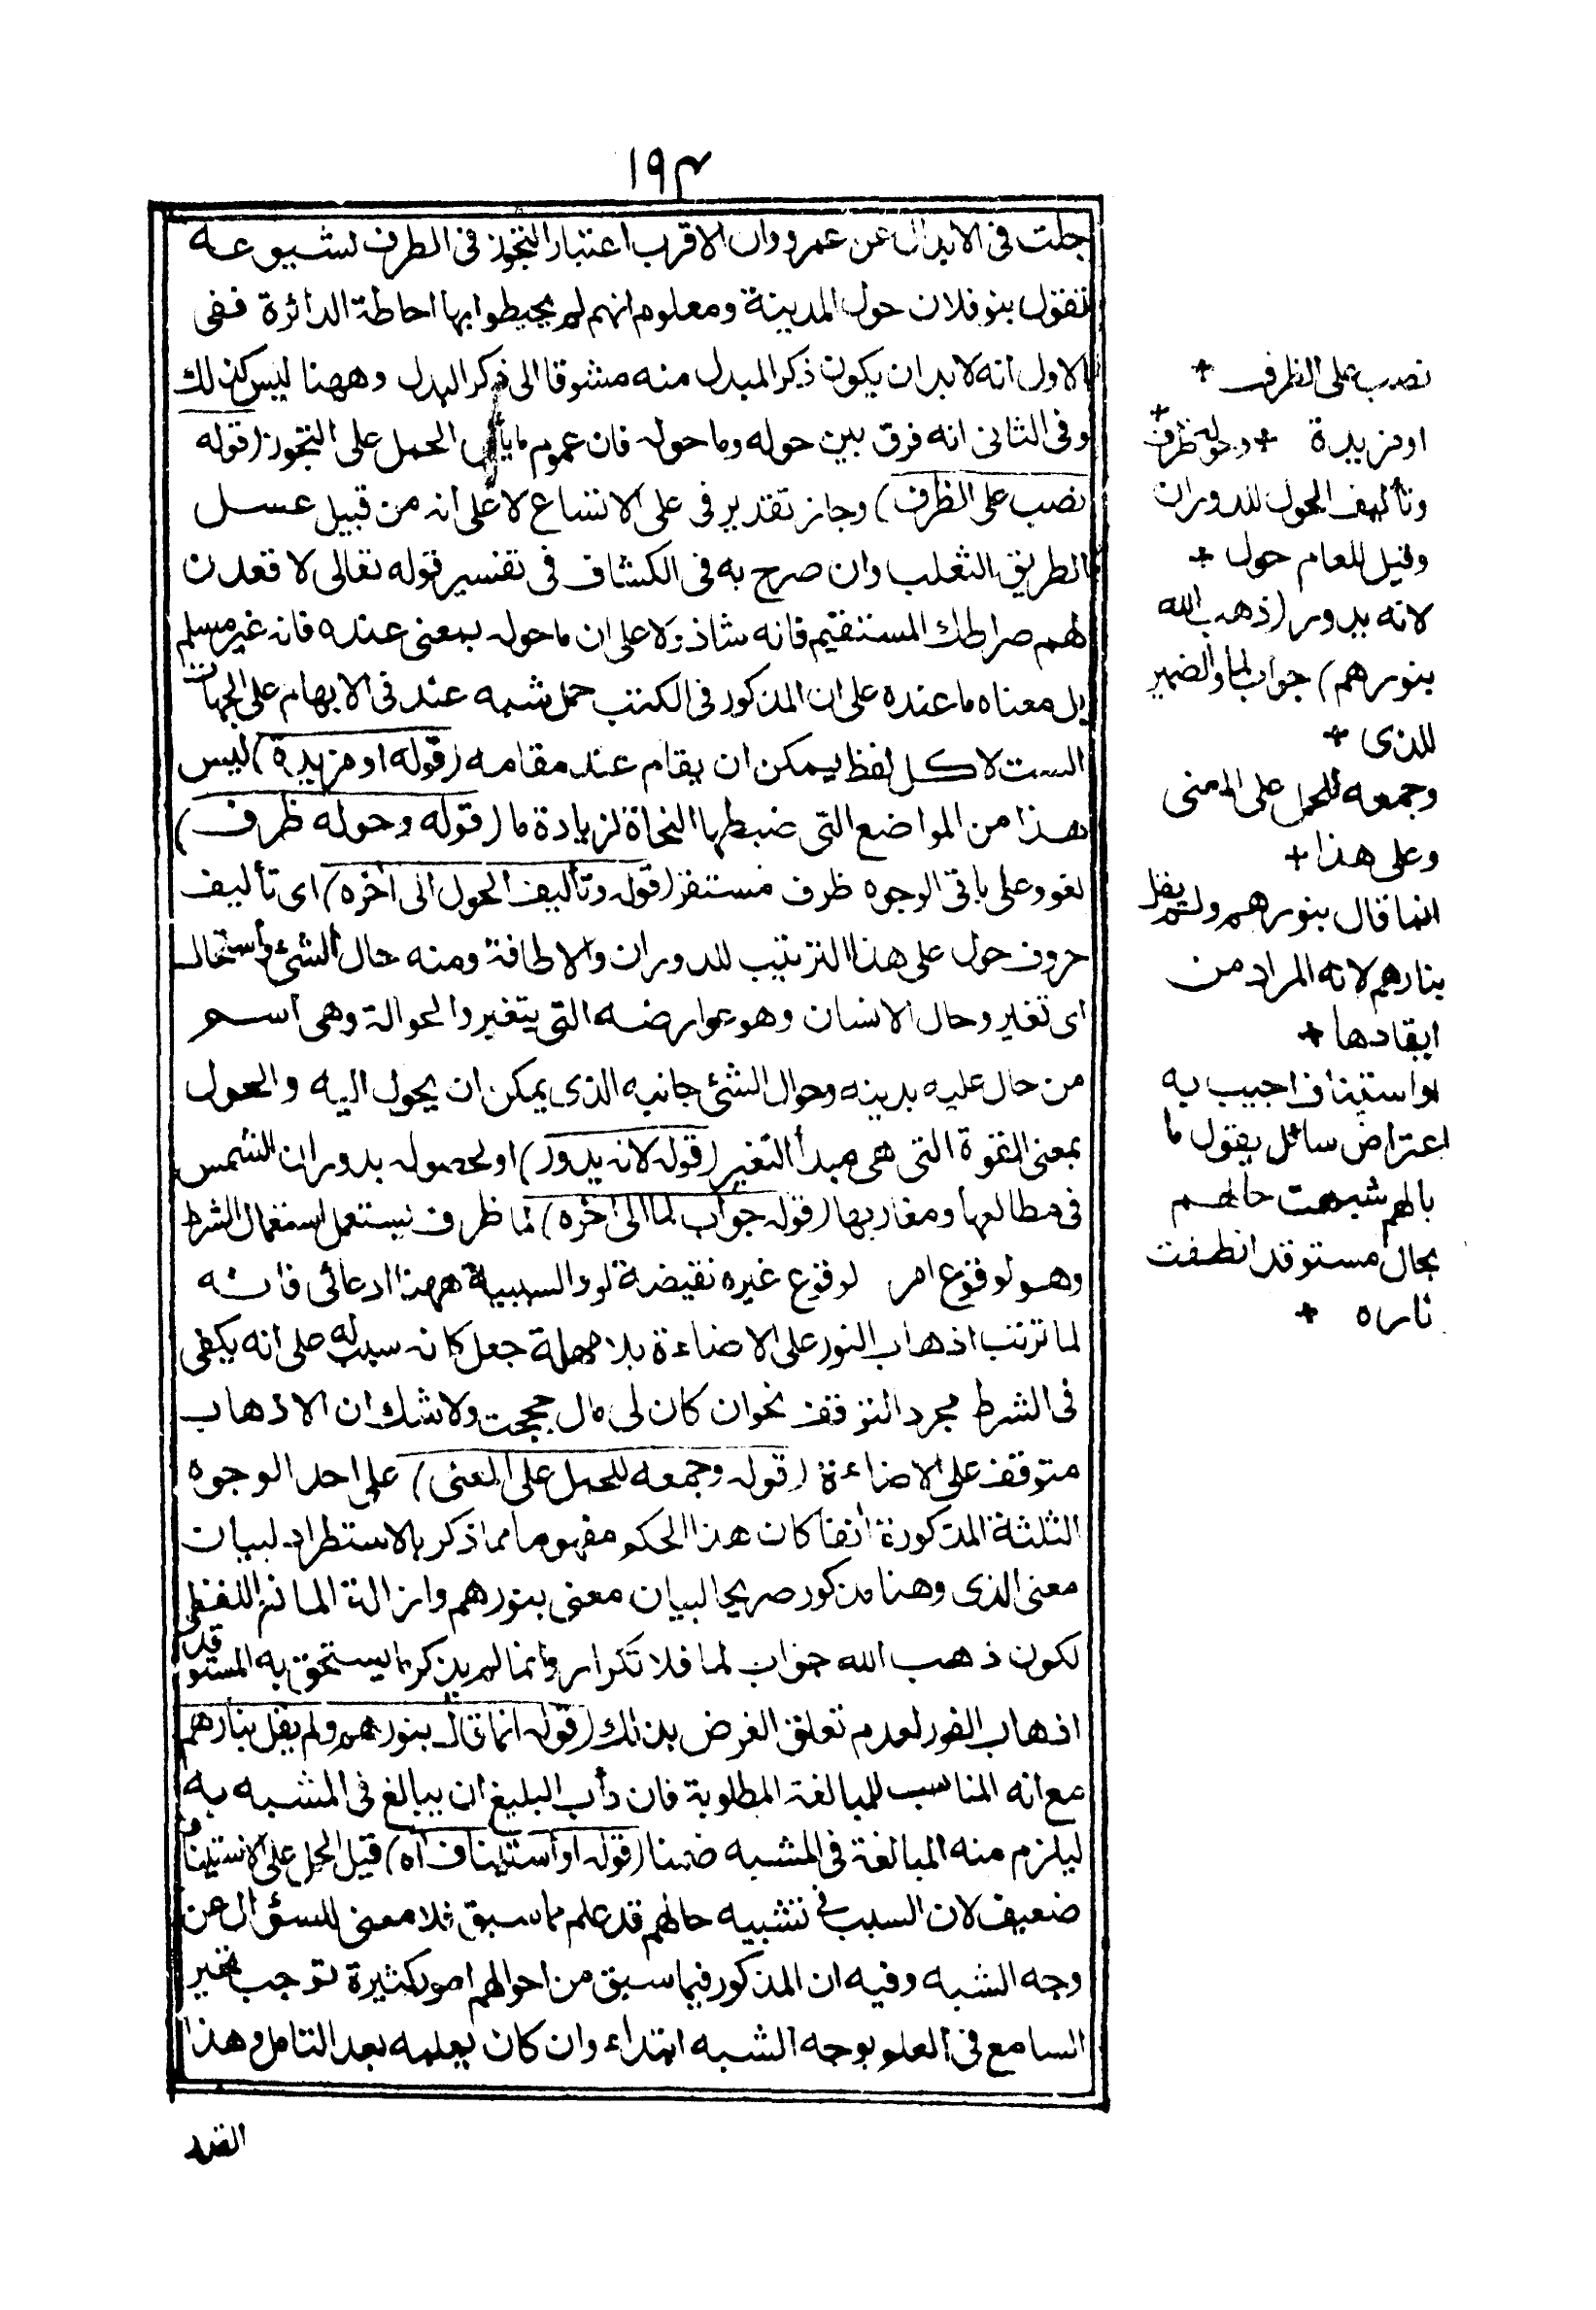 ١٩٣
جلت فى الابدال عن عمرو وان الاقرب اعتبار التجوز فى الظرف لشيوعه
تقول بنو فلان حول المدينة ومعلوم انهم لم يحيطوا بها احاطة الدائرة ففى
الاول انه لابد ان يكون ذكر المبدل منه مشوقا الى ذكر البدل وههنا ليس كذلك
وفى الثانى انه فرق بين حوله وما حوله فان عموم ما يأبى الحمل على التجوز (قوله
نصب على الظرف) وجاز تقدير فى على الاتساع لا على انه من قبيل عسل
الطريق الثعلب وان صرح به فى الكشاف فى تفسير قوله تعالى لاقعدن
لهم صراطك المستقيم فانه شاذ ولا على ان ما حوله بمعنى عنده فانه غير مسلم
بل معناه ما عنده على ان المذكور فى الكتب حمل شبه عند فى الابهام على الجهات
الست لا كل لفظ يمكن ان يقام عند مقامه (قوله او مزيدة) ليس
هذا من المواضع التى ضبطها النحاة لزيادة ما (قوله وحوله ظرف)
لغو وعلى باقى الوجوه ظرف مستقر (قوله وتأليف الحول الى اخره) اى تأليف
حروف حول على هذا الترتيب للدوران والاطافة ومنه حال الشئ واستحال
اى تغير وحال الانسان وهو عوارضه التى يتغير والحوالة وهى اسم
من حال عليه بدينه وحوال الشئ جانبه الذى يمكن ان يحول اليه والحول
بمعنى القوة التى هى مبدأ التغير (قوله لانه يدور) او لحصوله بدوران الشمس
فى مطالعها ومغاربها (قوله جواب لما الى اخره) لما ظرف يستعمل استعمال الشرط
وهو لوقوع امر لوقوع غيره نقيضة لو والسببية ههنا ادعائى فانه
لما ترتب اذهاب النور على الاضاءة بلا مهلة جعل كانه سبب له على انه يكفى
فى الشرط مجرد التوقف نحو ان كان لى مال حججت ولا شك ان الاذهاب
متوقف على الاضاءة (قوله وجمعه للحمل على المعنى) على احد الوجوه
الثلثة المذكورة انفا كان هذا الحكم مفهوما مما ذكر بالاستطراد لبيان
معنى الذى وهنا مذكور صريحا لبيان معنى بنورهم وازالة المانع اللفظى
لكون ذهب الله جواب لما فلا تكرار وانما لم يذكر ما يستحق به المستوقد
اذهاب النور لعدم تعلق الغرض بذلك (قوله انما قال بنورهم ولم يقل بنارهم
مع انه المناسب للمبالغة المطلوبة فان دأب البليغ ان يبالغ فى المشبه به
ليلزم منه المبالغة فى المشبه ضمنا (قوله او استيناف اه) قيل الحمل على الاستيناف
ضعيف لان السبب فى تشبيه حالهم قد علم مما سبق فلا معنى للسؤال عن
وجه الشبه وفيه ان المذكور فيما سبق من احوالهم امور كثيرة توجب تحير
السامع فى العلم بوجه الشبه ابتداء وان كان يعلمه بعد التامل وهذا
القدر
نصب على الظرف +
او مزيدة + وحوله ظرف +
وتأليف الحول للدوران
وقيل للعام حول +
لانه يدور (ذهب الله
بنورهم) جواب لما والضمير
للذى +
وجمعه للحمل على المعنى
وعلى هذا +
انما قال بنورهم ولم يقل
بنارهم لانه المراد من
ايقادها +
او استيناف اجيب به
اعتراض سائل يقول ما
بالهم شبهت حالهم
بحال مستوقد انطفت
ناره +